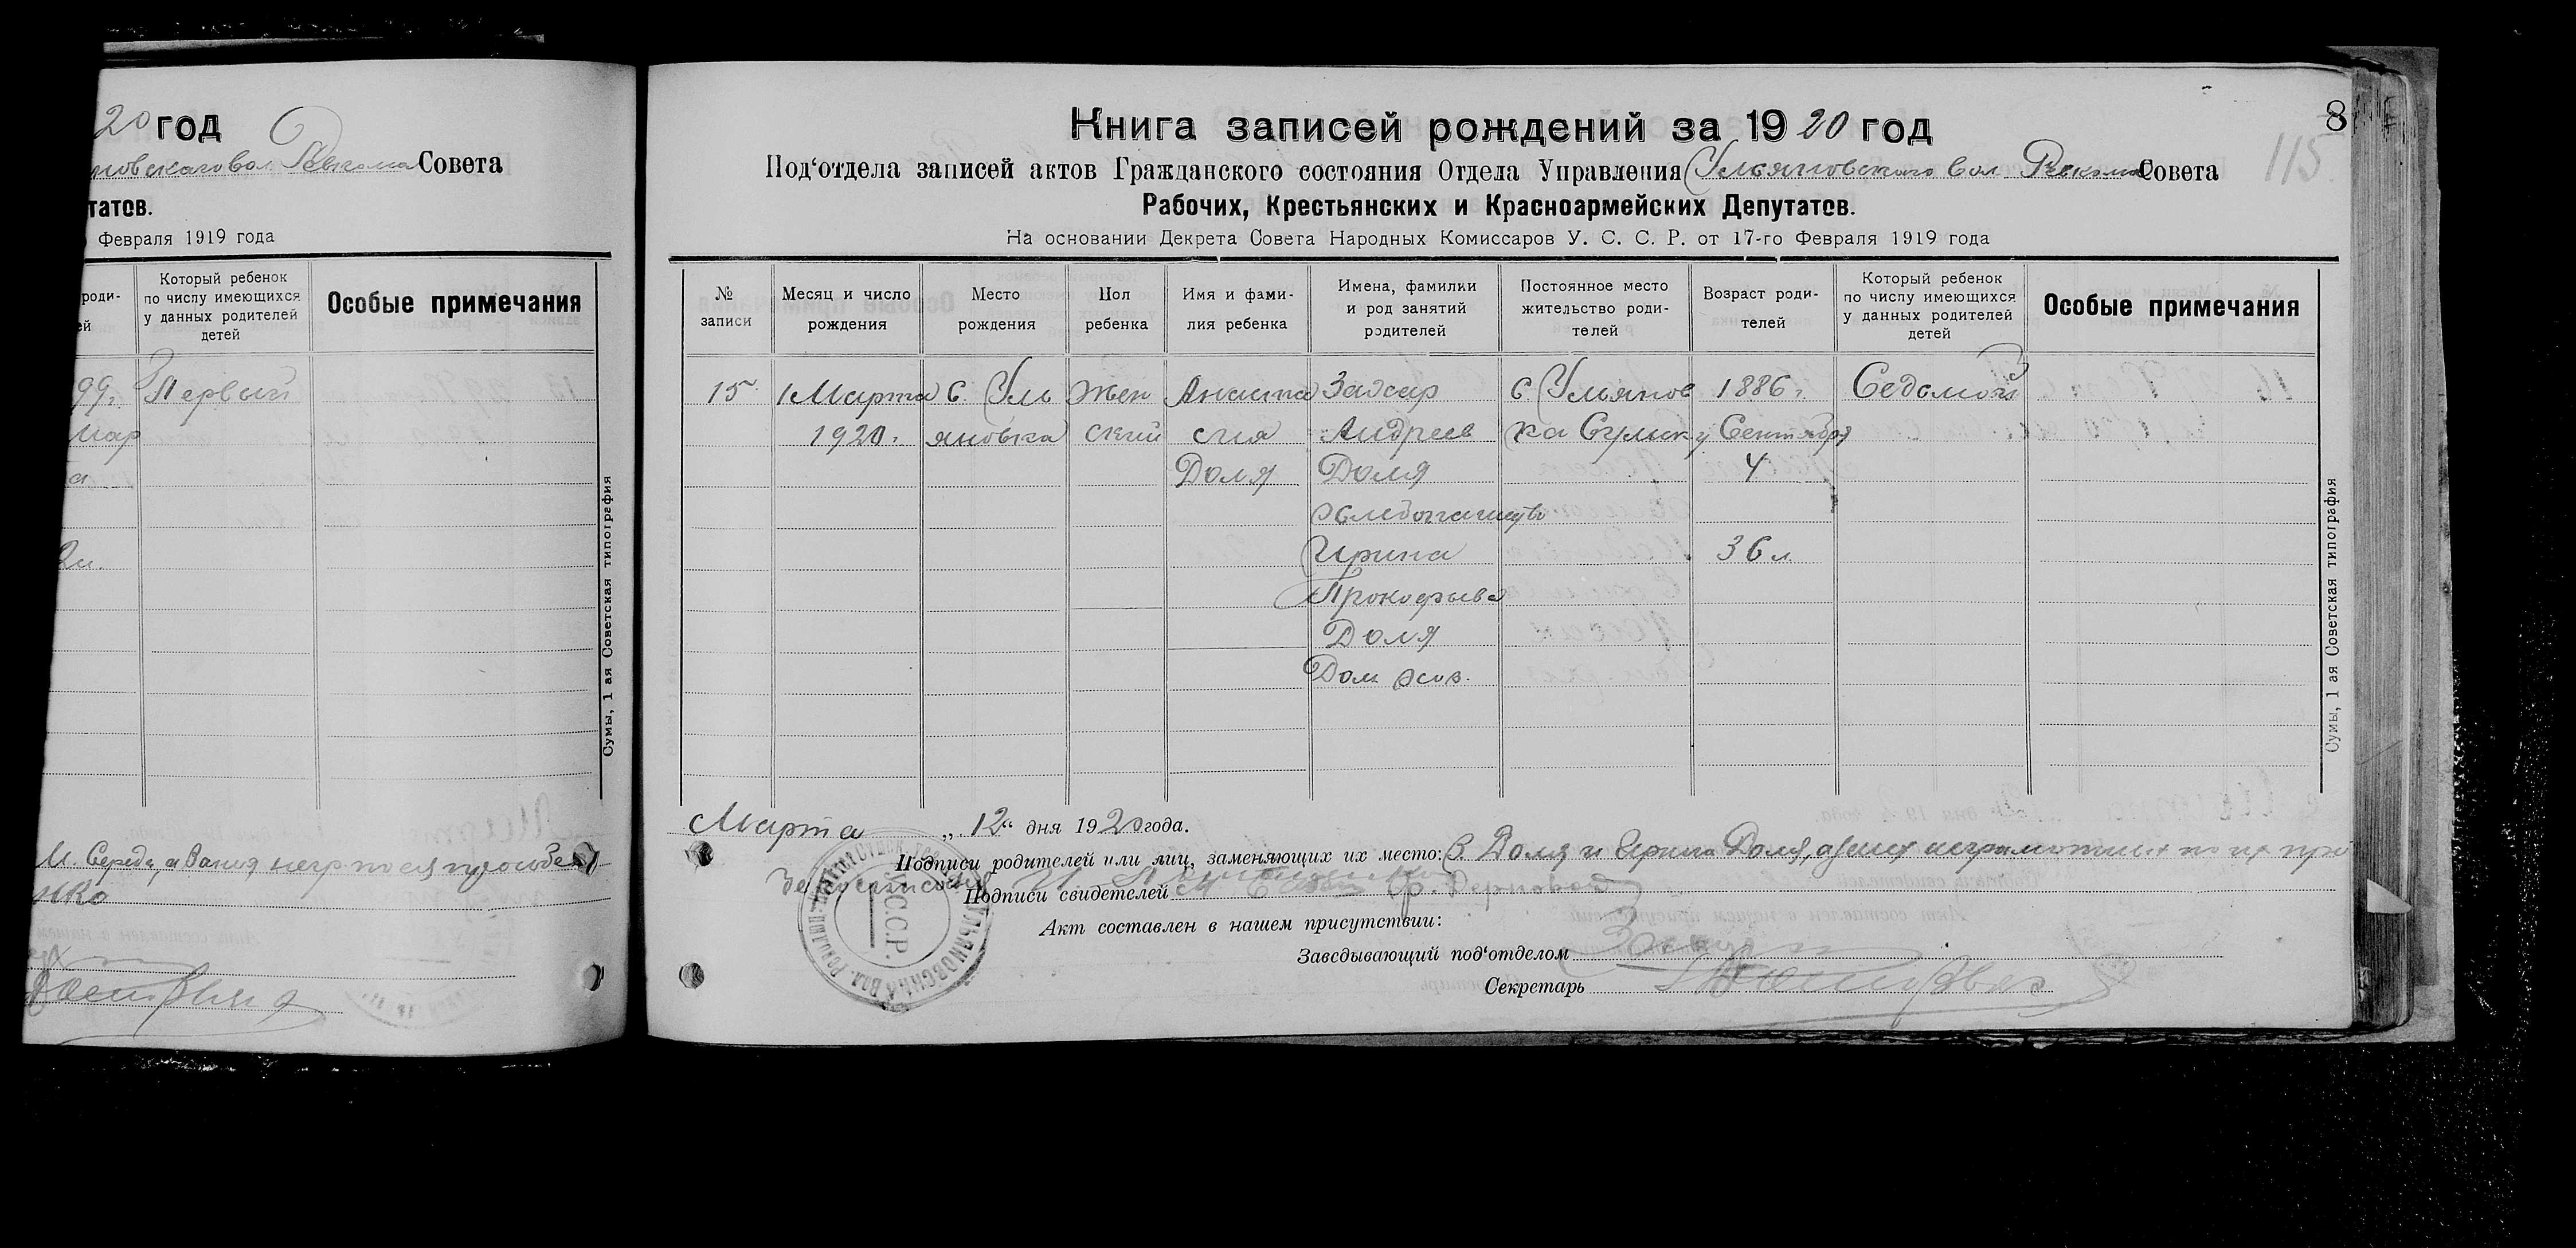 20 год
Ревкома Совета
татов.
Февраля 1919 года
роди-
ей
Который ребенок
по числу имеющихся
у данных родителей
детей
Особые примечания
99 г. Первый
мар
а
2 л.
Сумы, 1 ая Советская типография
М. Середа, а за нея негр. по ея просьбе
нко
8
115
Книга записей рождений за 1920 год
Под‘отдела записей актов Гражданского состояния Отдела Управления Ульяновского вол Ревкома Совета
Рабочих, Крестьянских и Красноармейских Депутатов.
На основании Декрета Совета Народных Комиссаров У. С. С. Р. от 17-го Февраля 1919 года
№
записи
Месяц и число
рождения
Место
рождения
Пол
ребенка
Имя и фами-
лия ребенка
Имена, фамилии
и род занятий
родителей
Постоянное место
жительство роди-
телей
Возраст роди-
телей
Который ребенок
по числу имеющихся
у данных родителей
детей
Особые примечания
15 1 Марта С. Уль Жен Анаста Захар С. Ульянов 1886 г. Седьмой
1920 г. яновка ский сия Андреев ка Сумск у Сентября
Доля Доля 4
Хлебопашество
Ирина 36 л.
Прокофьева
Доля
Дом хоз.
Сумы, 1 ая Советская типография
Марта „ 12 “ дня 1920 года.
Подписи родителей или лиц, заменяющих их место: З. Доля и Ирина Доля, а за них неграмотных по их про
зье росписался
Подписи свидетелей
Акт составлен в нашем присутствии:
Заведывающий под‘отделом
Секретарь
У.С.С.Р.